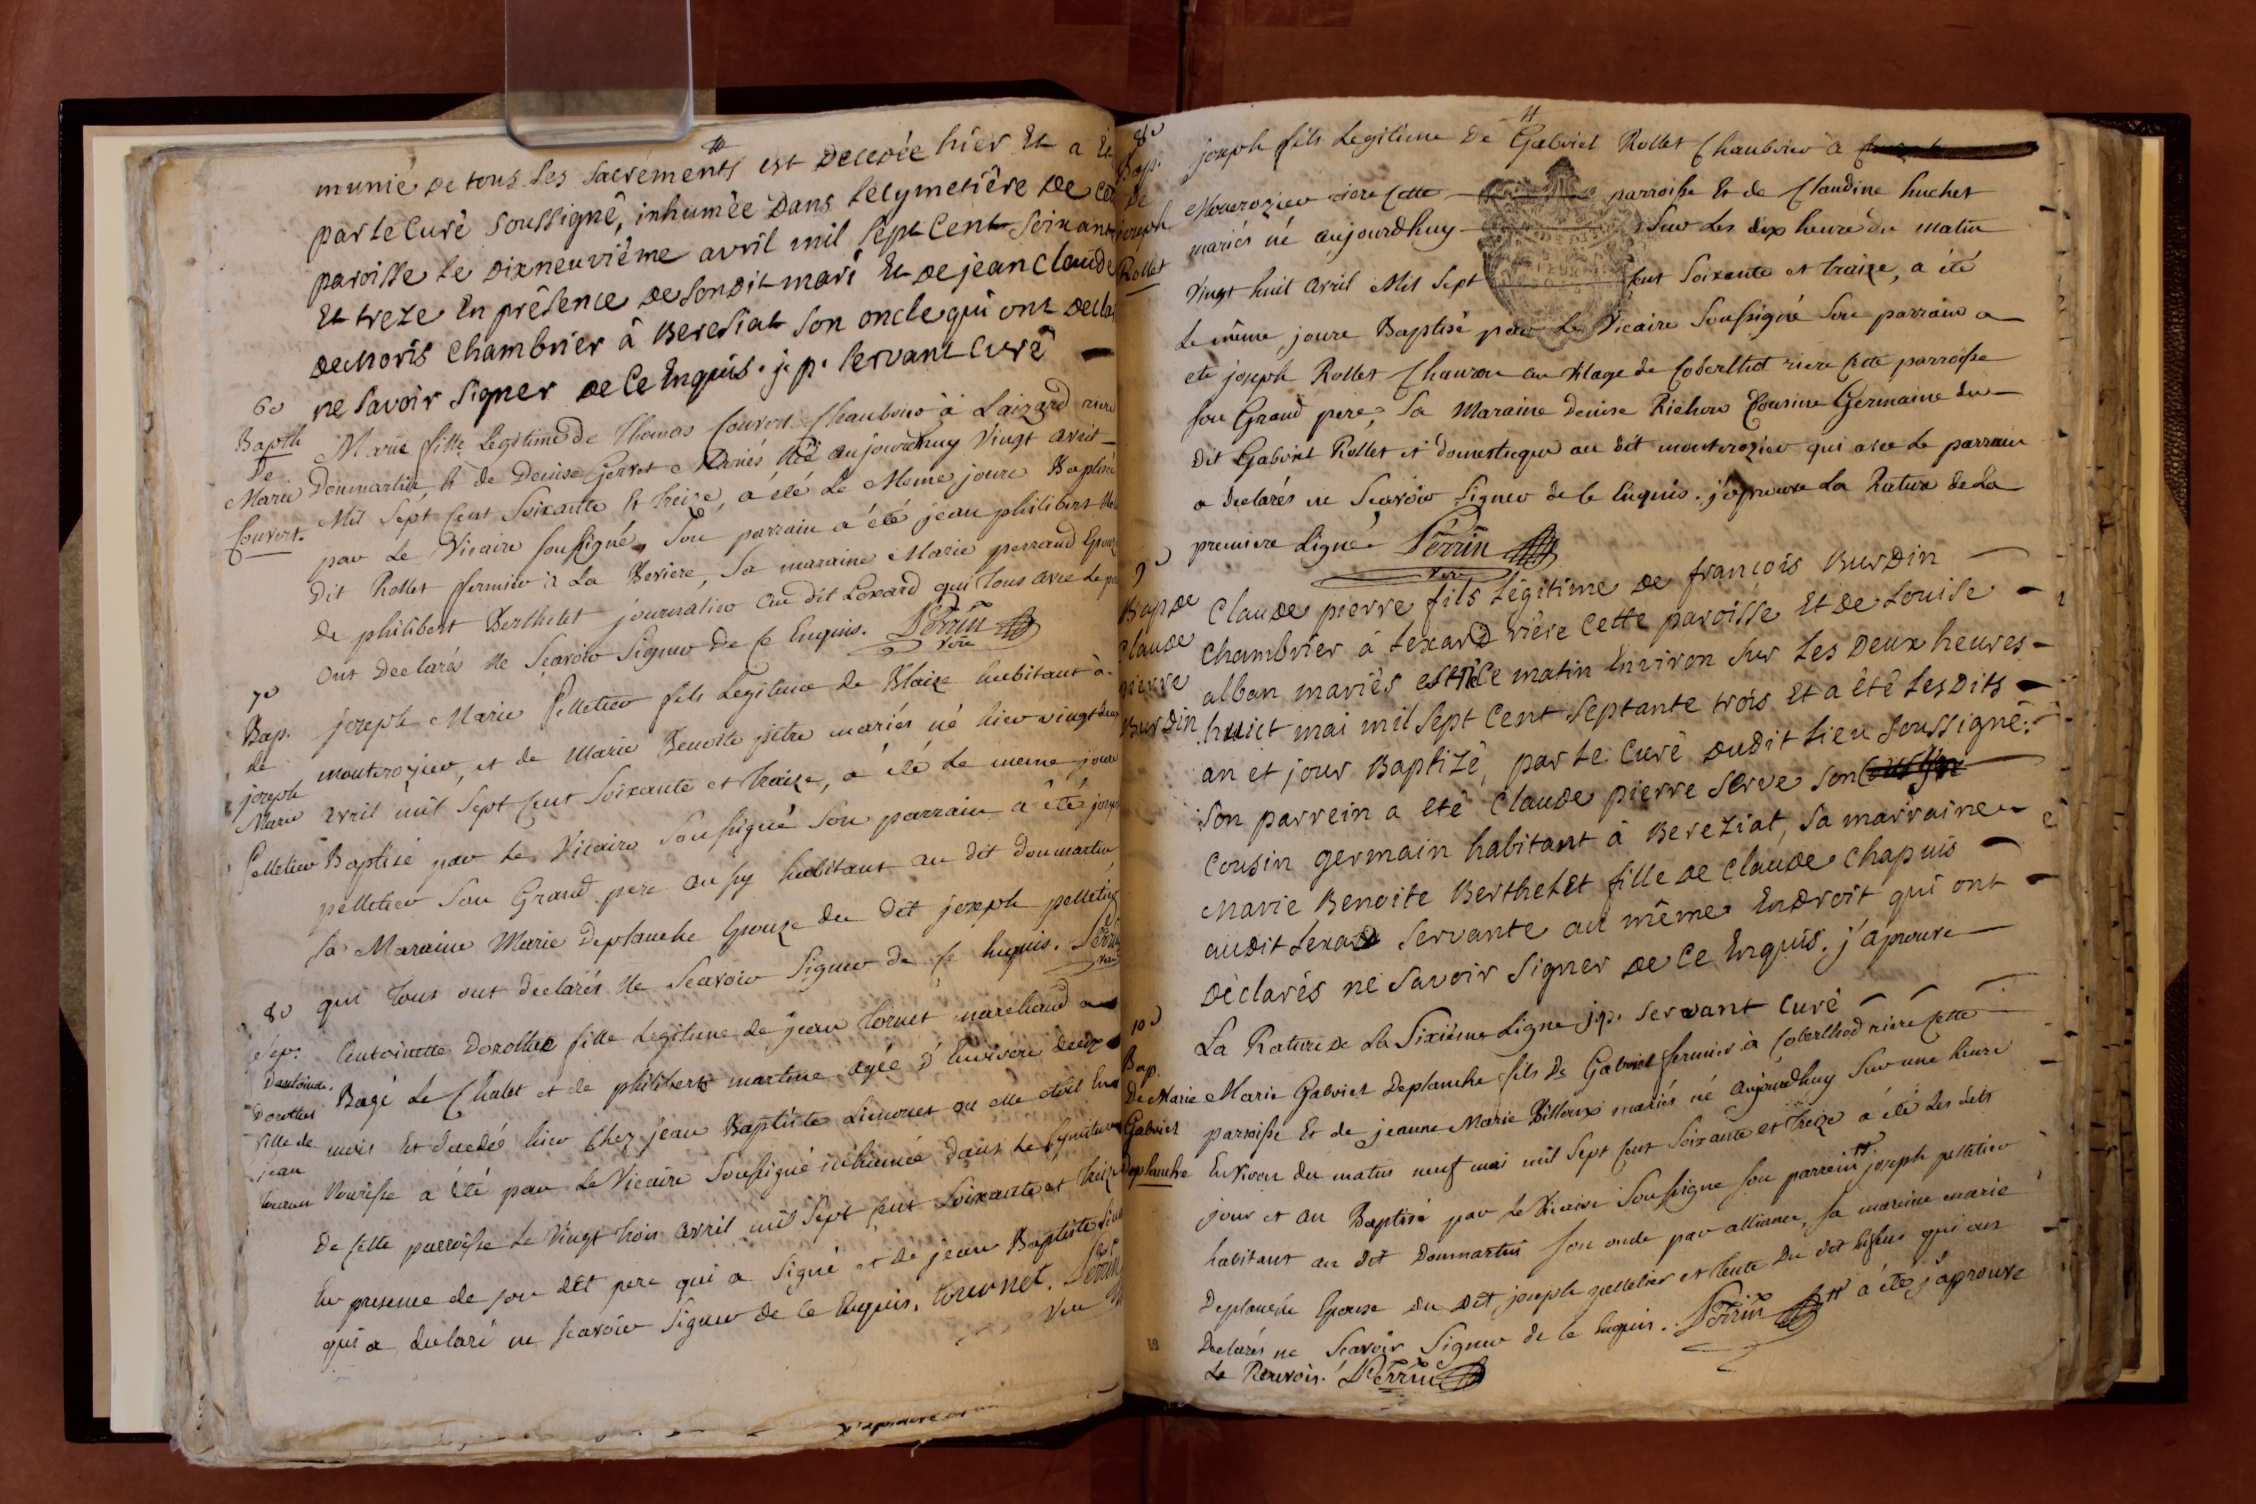 munie de tous les sacrements est decedée hier Et a
par le Curé soussigné, inhumée dans le cymetiêre de
paroisse le dixneuviême avril mil sept Cent soixante
Et treze En présence de sondit mari Et de jean Claude
de moris chambrier â Beresiat son oncle qui ont
ne savoir signer de Ce Enquis. j. p. servant Curé
6º
Bapt
De
Marie
Couvert.
Marie fille Legitime de Thomas Couvert Chambrier à riere
Donmartin Et de Denise Mariés née aujourdhuy Vingt avril
Mil Sept Cent Soixante Et treize, a été le Meme joure Baptisé
par Le Vicaire soussigné, Son parrain a été jean philibert
dit Rollet fermier à La, Sa maraine Marie perraud Epouze
de philibert Berthelet journalier au dit Lexard qui tous avec le
Ont Declarés Ne Scavoir Signer De Ce Enquis. Perrin
7º
Bap.
de
joseph
Marie
Pelletier
joseph Marie Pelletier fils Legitime de Blaize habitant à
monterozier, et de Marie Benoite mariés né hier vingt
avril mil Sept Cent Soixante et traize, a été le meme joure
Baptisé par Le Vicaire Soussigné Son parrain a été
pelletier Son Grand pere aussy habitant au dit donmartin
Sa Maraine Marie Deplanche Epouze du dit joseph
qui tous ont declarés Ne Scavoir Signer de Ce Enquis. Perrin
8º
Dorothée
fille de
jean
Dorothée fille Legitime de jean Tornet marchand a
Bagé Le Chatel et de philiberte martine agée d'Environ
mois Et decedée hier Chez jean Baptiste ou elle etoit En
Nourisse a été par Le Vicaire Soussigné inhumée dans Le
De Cette parroisse Le Vingt trois avril mil Sept Cent Soixante et
En presence de Son dit pere qui a Signé et de jean Baptiste
qui a declaré ne scavoir Signer de Ce Enquis. tournet. Perrin
8º
Bap.
De
joseph
Rollet
joseph fils Legitime De Gabriel Rollet Chambrier à
Monterozier riere Cette parroisse Et de Claudine huchet
mariés né aujourdhuy Sur Les dix heure du matin
Vingt huit avril Mil Sept Cent Soixante et traize, a été
Le même joure Baptisé par Le Vicaire Soussigné Son parrain a
eté joseph Rollet au Vilage de Coberthod riere Cette parroisse
Son Grand pere, Sa Maraine Denise Cousine Germaine du
Dit Gabriel Rollet et domestique au dit monterozier qui avec Le parrain
a declarés ne Scavoir Signer de Ce Enquis. j'aprouve La Rature de La
premiere Ligne Perrin
9º
Bap de
Claude
pierre
Burdin
Claude pierre fils Légitime de francois Burdin
chambrier à Lexard riêre Cette paroisse Et de Louise
alban mariés est né Ce matin Environ sur Les Deux heures
huict mai mil sept Cent septante trois Et a été Lesdits
an et jour Baptizé, par le Curé dudit Lieu soussigné.
son parrein a eté Claude pierre serve son
Cousin germain habitant à Bereziat, sa marraine
Marie Benoite Berthelet fille de Claude Chapuis
audit Lexard servante au même Endroit qui ont
déclarés ne savoir signer de Ce Enquis. j'aprouve
La Rature de La Sixiême Ligne j. p. servant Curé
10º
Bap.
De Marie
Gabriel
Deplanche
Marie Gabriel Deplanche fils De Gabriel fermier à Coberthod riere Cette
parroisse Et de jeanne Marie Billoux mariés né aujourdhuy Sur une heure
Environ du matin neuf mai mil Sept Cent Soixante et Treize a été Les dits
jour et an Baptisé par Le Vicaire Soussigné Son parrein joseph pelletier
habitant au dit Donmartin Son oncle par alliance, Sa mareine marie
Deplanche Epouse du dit joseph pelletier et tente Du dit qui ont
Declarés ne Scavoir Signer de Ce Enquis. Perrin a été j'aprouve
Le Renvois. Perrin